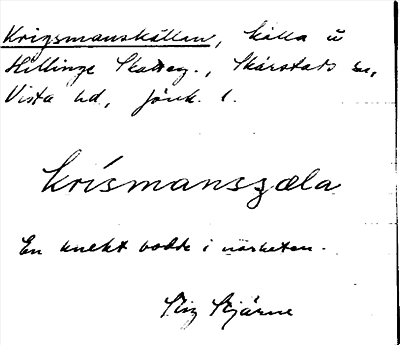 Krigsmanskällan, källa å
Hillinge Skatteg., Skärstads sn,
Vista hd, Jönk. l.
krísmanszæla
En knekt bodde i närheten.
Stig Stjärne